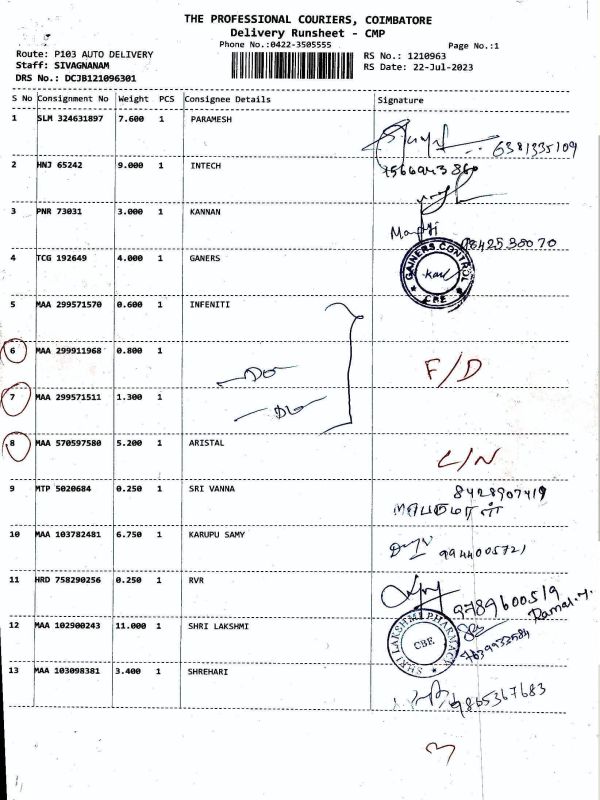 THE PROFESSIONAL COURIERS, COIMBATORE
Delivery Runsheet - CMP
Phone No.:0422-3505555
Page No.:1
Route: P103 AUTO DELIVERY
RS No.: 1210963
Staff: SIVAGNANAM
RS Date: 22-Jul-2023
DRS No.: DCJB121096301
S No Consignment No Weight PCS Consignee Details Signature
1 SLM 324631897 7.600 1 PARAMESH
6381335109
2 HNJ 65242 9.000 1 INTECH
3 PNR 73031 3.000 1 KANNAN
9842538070
4 TCG 192649 4.000 1 GANERS
GAINERS CONTROL
CBE
5 MAA 299571570 0.600 1 INFENITI
6 MAA 299911968 0.800 1
F/D
-Do-
7 MAA 299571511 1.300 1
-Do-
8 MAA 570597580 5.200 1 ARISTAL
L/N
9 MTP 5020684 0.250 1 SRI VANNA
8428907419
10 MAA 103782481 6.750 1 KARUPU SAMY
9944005721
11 HRD 758290256 0.250 1 RVR
9789600519
12 MAA 102900243 11.000 1 SHRI LAKSHMI
SHRI LAKSHMI PHARMACY
CBE
13 MAA 103098381 3.400 1 SHREHARI
9865367683
3